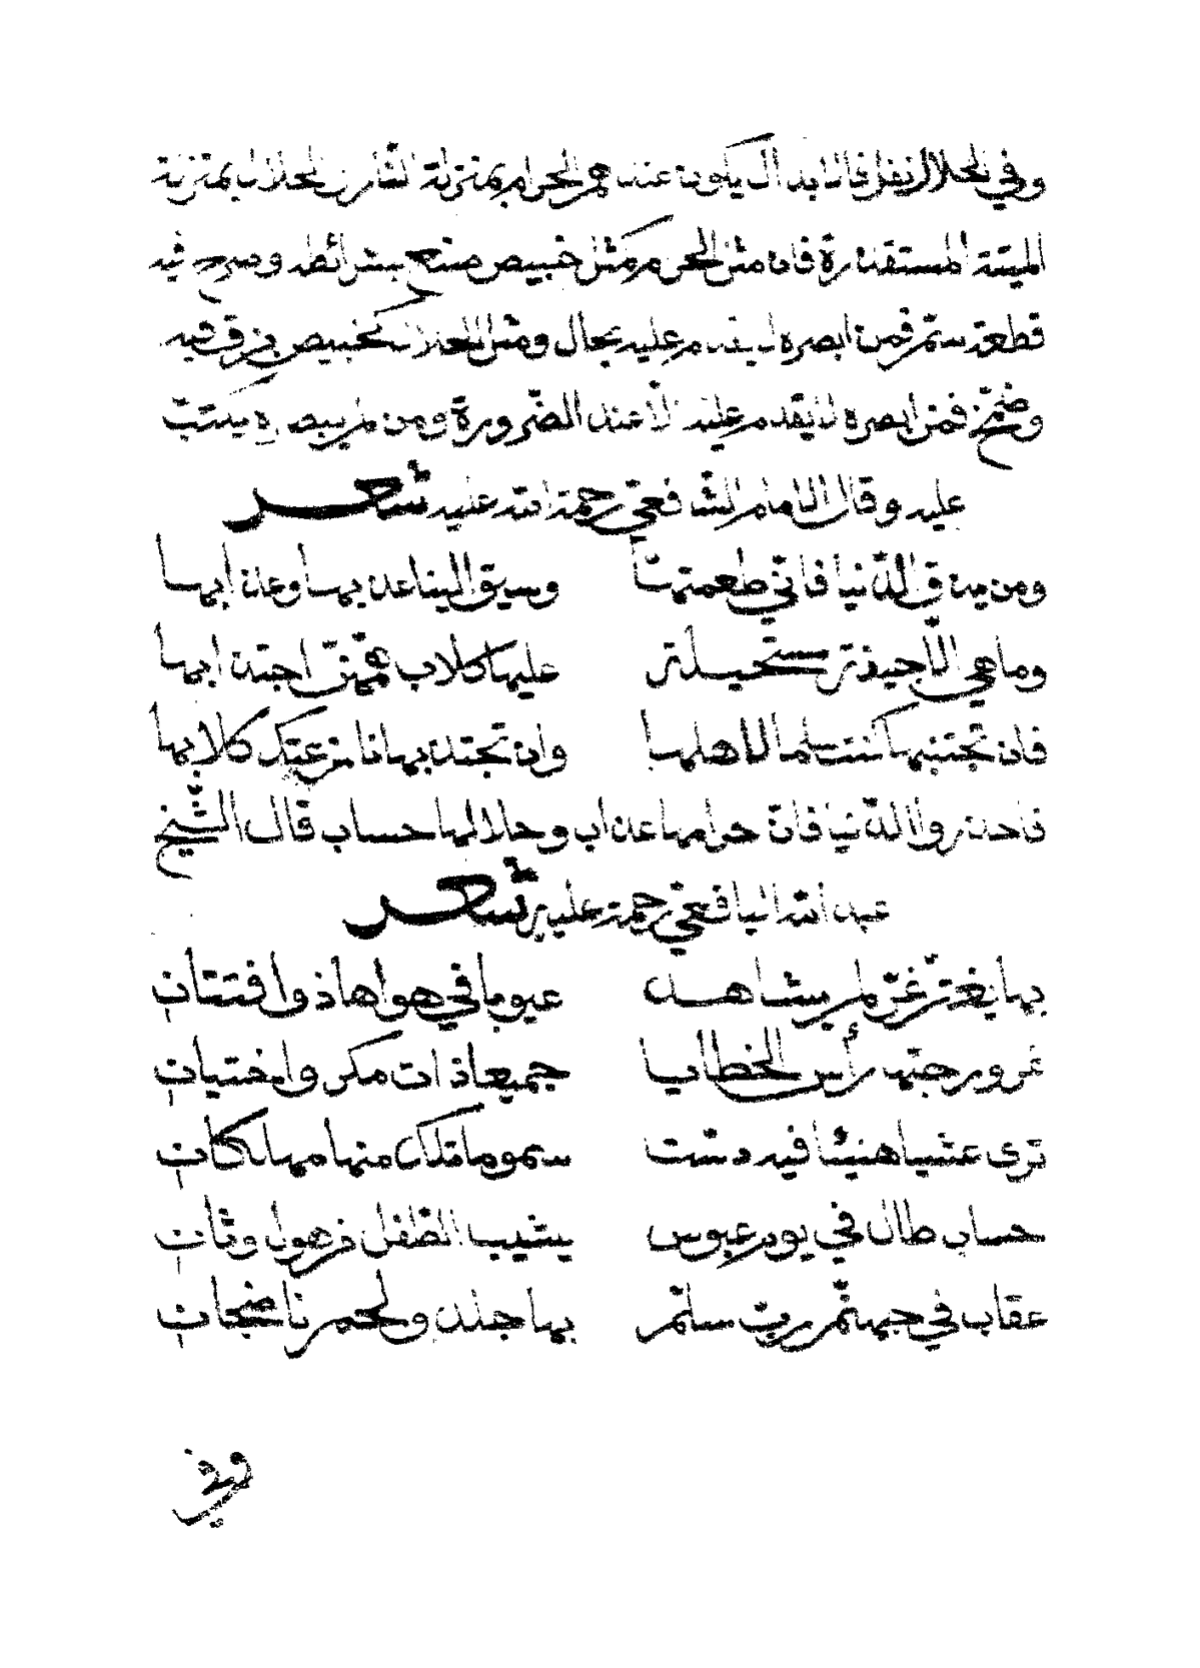 وفي الحلال نفل فلا بد ان يكون عندهم الحرام بمنزلة النار والحلال بمنزلة
الميتة المستقذرة فان مثل الحرام كمثل خبيص صنع بشرائطه وصرح فيه
قطعة ستم فمن ابصره لا يقدم عليه بحال ومثل الحلال كخبيص بزق فيه
وضمخ فمن ابصره لا يقدم عليه الا عند الضرورة ومن لم يبصره يكتب
عليه وقال الامام الشافعي رحمة الله عليه شعر
ومن يذق الدّنيا فانّي طعمتها وسيق الينا عذبها وعذابها
وما هي الّا جيفة مستحيلة عليها كلاب همّهنّ اجتذابها
فان تجتنبها كنت سلما لاهلها وان تجتذبها نازعتك كلابها
فاحذروا الدّنيا فانّ حرامها عذاب وحلالها حساب قال الشّيخ
عبد الله اليافعي رحمة عليه شعر
بها يغترّ غرّ لم يشاهد عيوبا في هواها ذو افتتان
غرور حبّها رأس الخطايا جميعا ذات مكر واختيان
ترى عشيا هنيئا فيه دسّت سموما تلك منها مهلكات
حساب طال في يوم عبوس يشيب الطّفل من هول وثان
عقاب في جهنّم ربّ سلّم بها جلد ولحم ناضجات
وفي